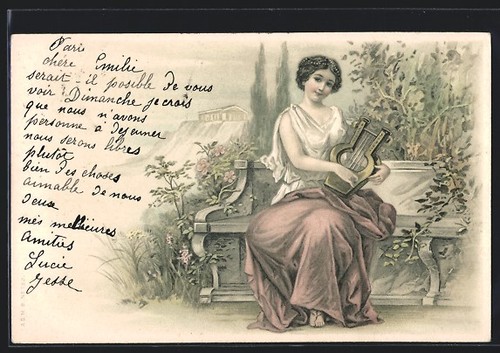 Paris
chère Emilie
serait-il posible de vous
voir Dimanche je crois
que nous n'avons
personne a dejeuner
nous serons libres
plutôt
bien des choses
aimable de nous
deux
més meilleures
amitiés
Lucie
Jesse